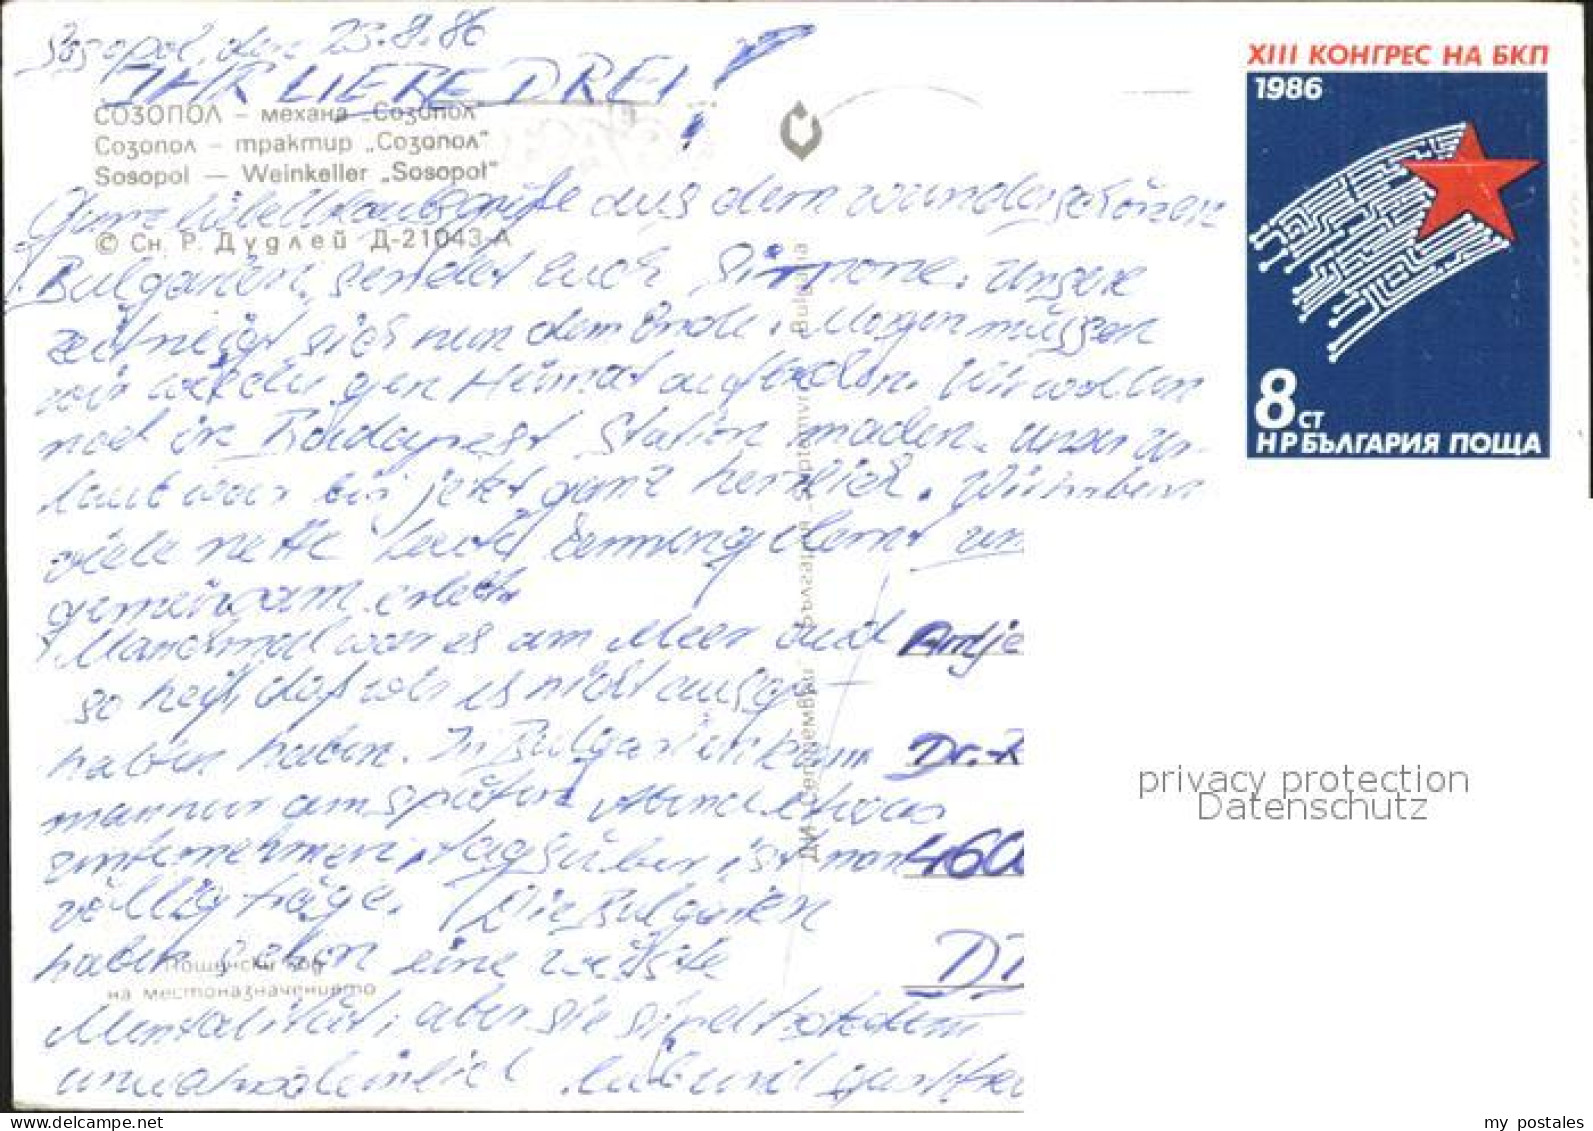 Sosopol, den 23.9.86
IHR LIEBE DREI!
XIII КОНГРЕС НА БКП
1986
СОЗОПОЛ – механа „Созопол“
Созопол – трактир „Созопол“
Sosopol — Weinkeller „Sosopol“
© Сн. Р. Дудлей Д-21043-А
8 СТ
НР БЪЛГАРИЯ ПОЩА
Ganz liebe Urlaubsgrüße aus dem wunderschönen
Bulgarien, sendet Euch Simone. Unsere
Zeit neigt sich nun dem Ende. Morgen müssen
wir wieder gen Heimat aufbrechen. Wir wollen
noch in Budapest Station machen. Unser Ur-
laub war bis jetzt ganz herrlich. Wir haben
viele nette Leute kennengelernt und
gemeinsam erlebt.
Manchmal war es am Meer auch
so heiß, daß wir es nicht ausge-
halten haben. In Bulgarien kann
man nur am späten Abend etwas
unternehmen, tagsüber ist man
völlig träge. Die Bulgaren
haben schon eine weiche
Mentalität, aber sie sind trotzdem
unwahrscheinlich lieb und gastfreu
Antje
Dr.-
4600
ДИ „Септември“
България
„Septemvri“ Bulgaria
Пощенски код
на местоназначението
privacy protection
Datenschutz
my_postales